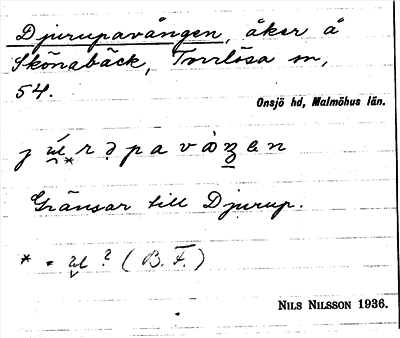 Djurupavången, åker å
Skönabäck, Torrlösa sn,
54.
Onsjö hd, Malmöhus län.
Gränsar till Djurup.
? (B. F.)
NILS NILSSON 1936.